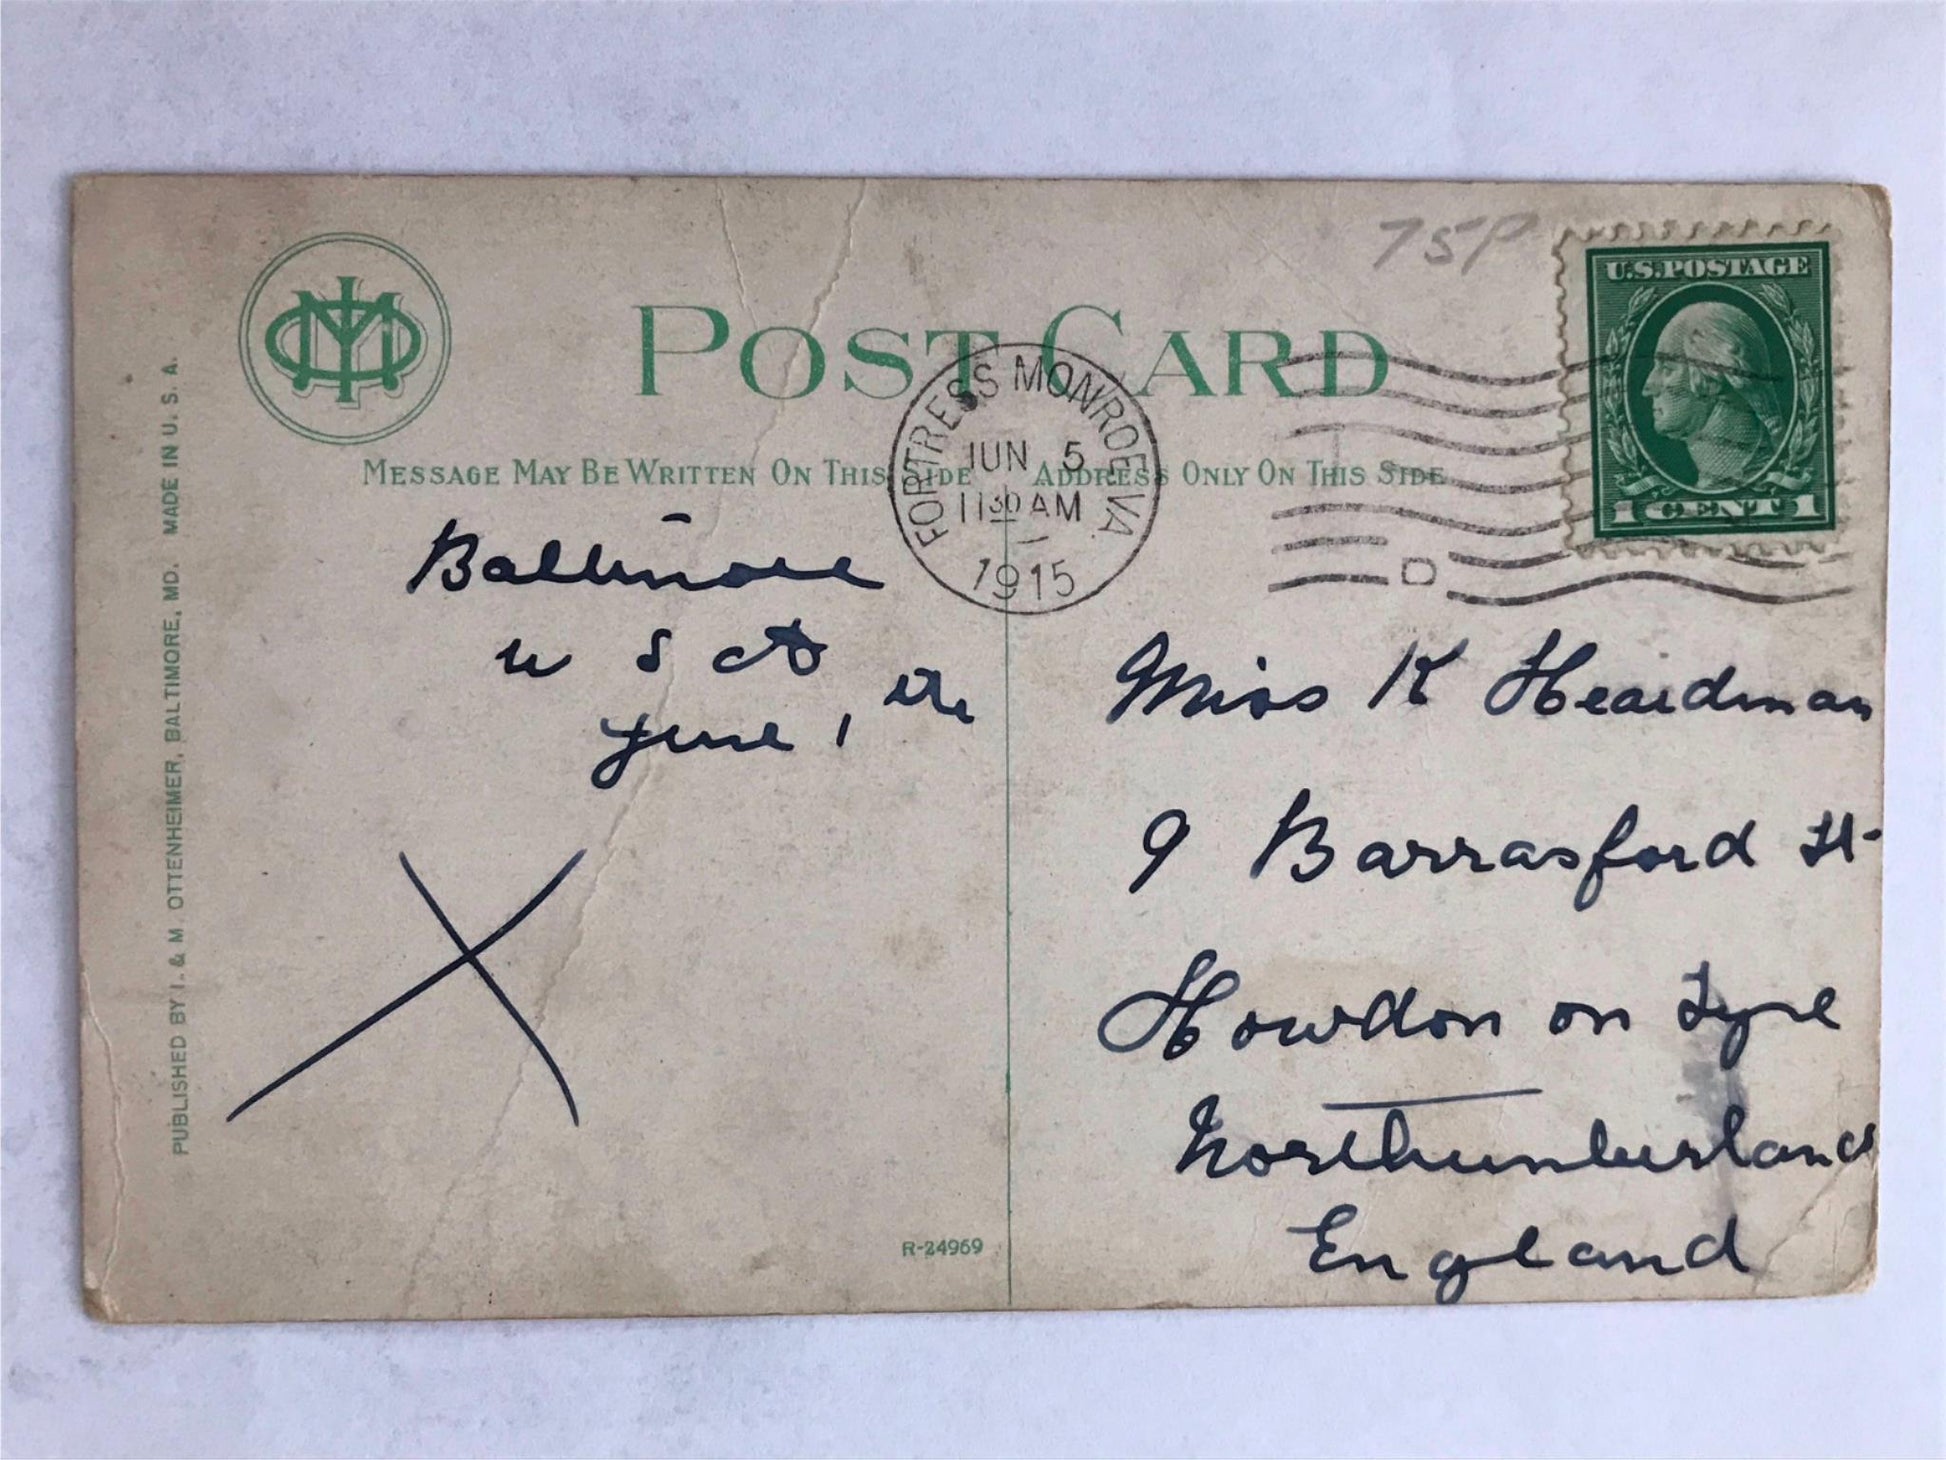 75P
U.S. POSTAGE
1 CENT 1
POST CARD
FORTRESS MONROE, VA.
JUN 5
11 30 AM
1915
MESSAGE MAY BE WRITTEN ON THIS SIDE
ADDRESS ONLY ON THIS SIDE
Baltimore
U S A
June 1
Miss K Heardman
9 Barrasford St
Howdon on Tyne
Northumberland
England
R-24969
PUBLISHED BY I. & M. OTTENHEIMER, BALTIMORE, MD. MADE IN U. S. A.